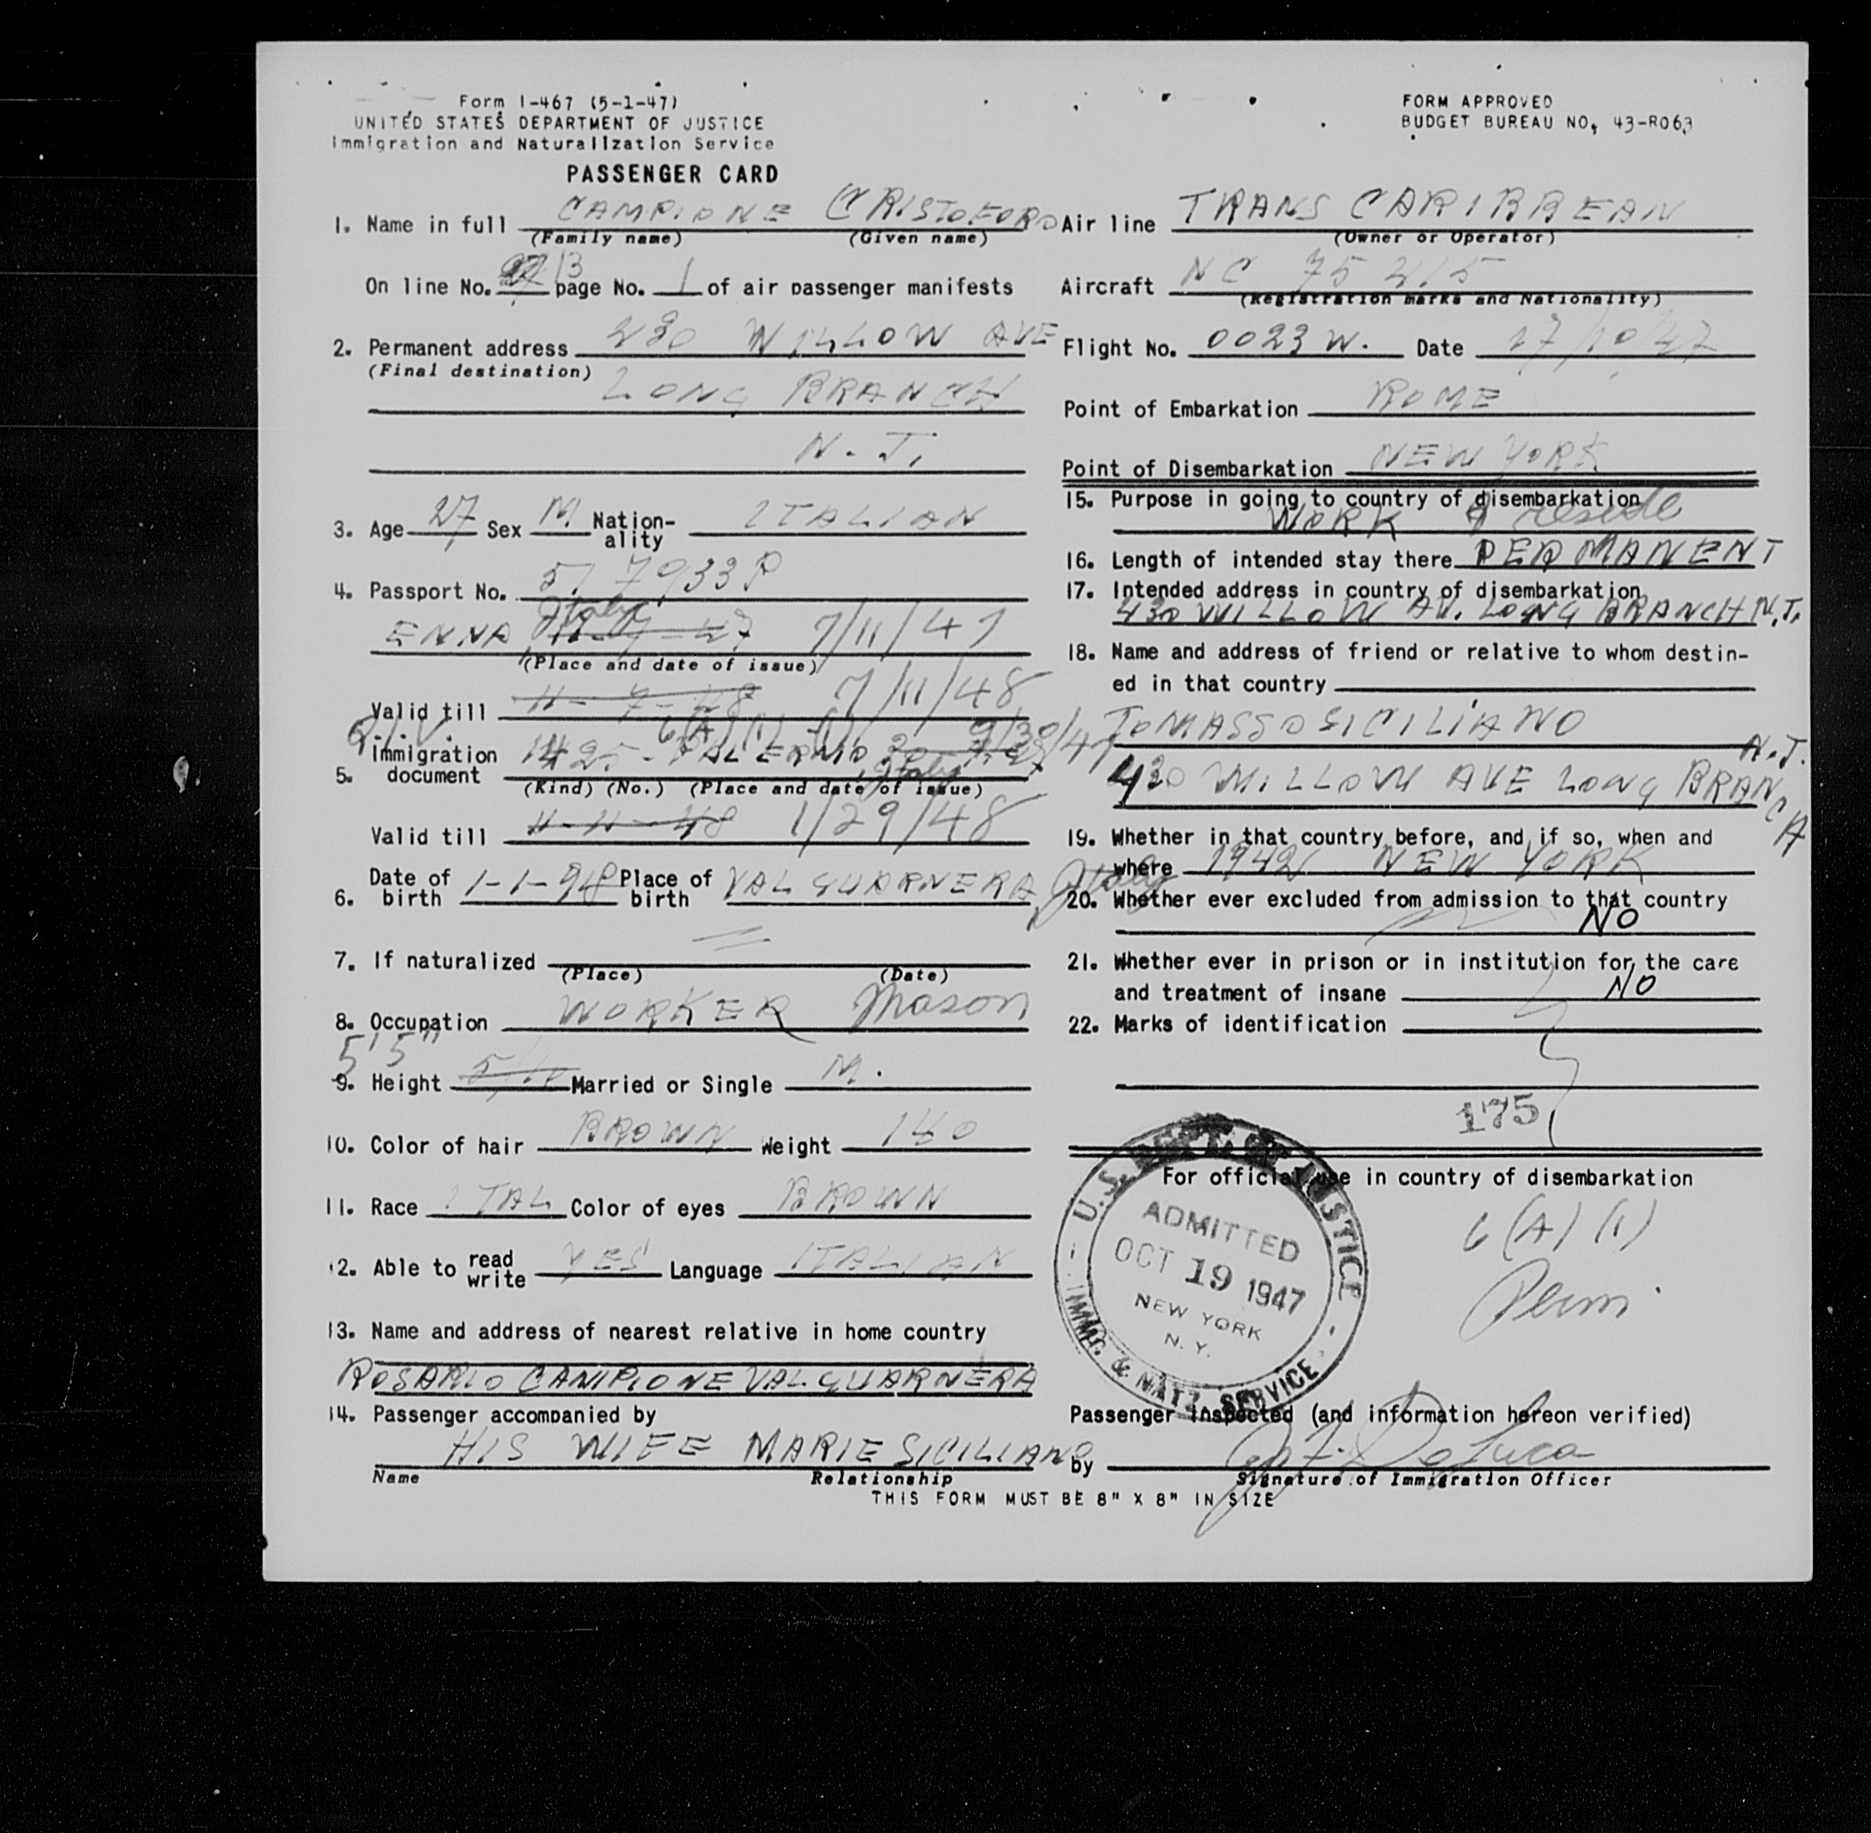 Form I-467 (5-1-47)
UNITED STATES DEPARTMENT OF JUSTICE
Immigration and Naturalization Service
PASSENGER CARD
FORM APPROVED
BUDGET BUREAU NO, 43-R063
1. Name in full CAMPIONE CRISTOFORO
(Family name) (Given name)
On line No. 13 page No. 1 of air passenger manifests
2. Permanent address 430 WILLOW AVE
(Final destination) LONG BRANCH
N. J.
3. Age 27 Sex M Nation-ality ITALIAN
4. Passport No. 517933P
ENNA Italy 11-7-47 7/11/47
(Place and date of issue)
Valid till 11-7-48 7/11/48
Q.I.V. 6(A)(1) 9/30/47
5. Immigration document 1425 - PALERMO Italy
(Kind) (No.) (Place and date of issue)
Valid till 11-11-48 1/29/48
6. Date of birth 1-1-
Place of birth VALGUARNERA Italy
7. If naturalized
(Place) (Date)
8. Occupation WORKER Mason
5'5"
9. Height Married or Single M.
10. Color of hair BROWN Weight 140
11. Race ITAL Color of eyes BROWN
12. Able to read write YES Language ITALIAN
13. Name and address of nearest relative in home country
ROSARIO CAMPIONE VALGUARNERA
14. Passenger accompanied by
HIS WIFE MARIE SICILIANO
Name Relationship
Air line TRANS CARIBBEAN
(Owner or Operator)
Aircraft NC 75415
(Registration marks and Nationality)
Flight No. 0023 W. Date 17/10/47
Point of Embarkation ROME
Point of Disembarkation NEW YORK
15. Purpose in going to country of disembarkation
WORK & reside
16. Length of intended stay there PERMANENT
17. Intended address in country of disembarkation
430 WILLOW AV. LONG BRANCH N.J.
18. Name and address of friend or relative to whom destin-
ed in that country
TOMASSO SICILIANO
430 WILLOW AVE LONG BRANCH N.J.
19. Whether in that country before, and if so, when and
where 1942 NEW YORK
20. Whether ever excluded from admission to that country
NO
21. Whether ever in prison or in institution for the care
and treatment of insane NO
22. Marks of identification
175
For official use in country of disembarkation
6(A)(1)
Perm.
U.S. DEPT. OF JUSTICE
ADMITTED
OCT 19 1947
NEW YORK
N. Y.
IMMG. & NATZ. SERVICE
Passenger inspected (and information hereon verified)
by De Luca
Signature of Immigration Officer
THIS FORM MUST BE 8" X 8" IN SIZE